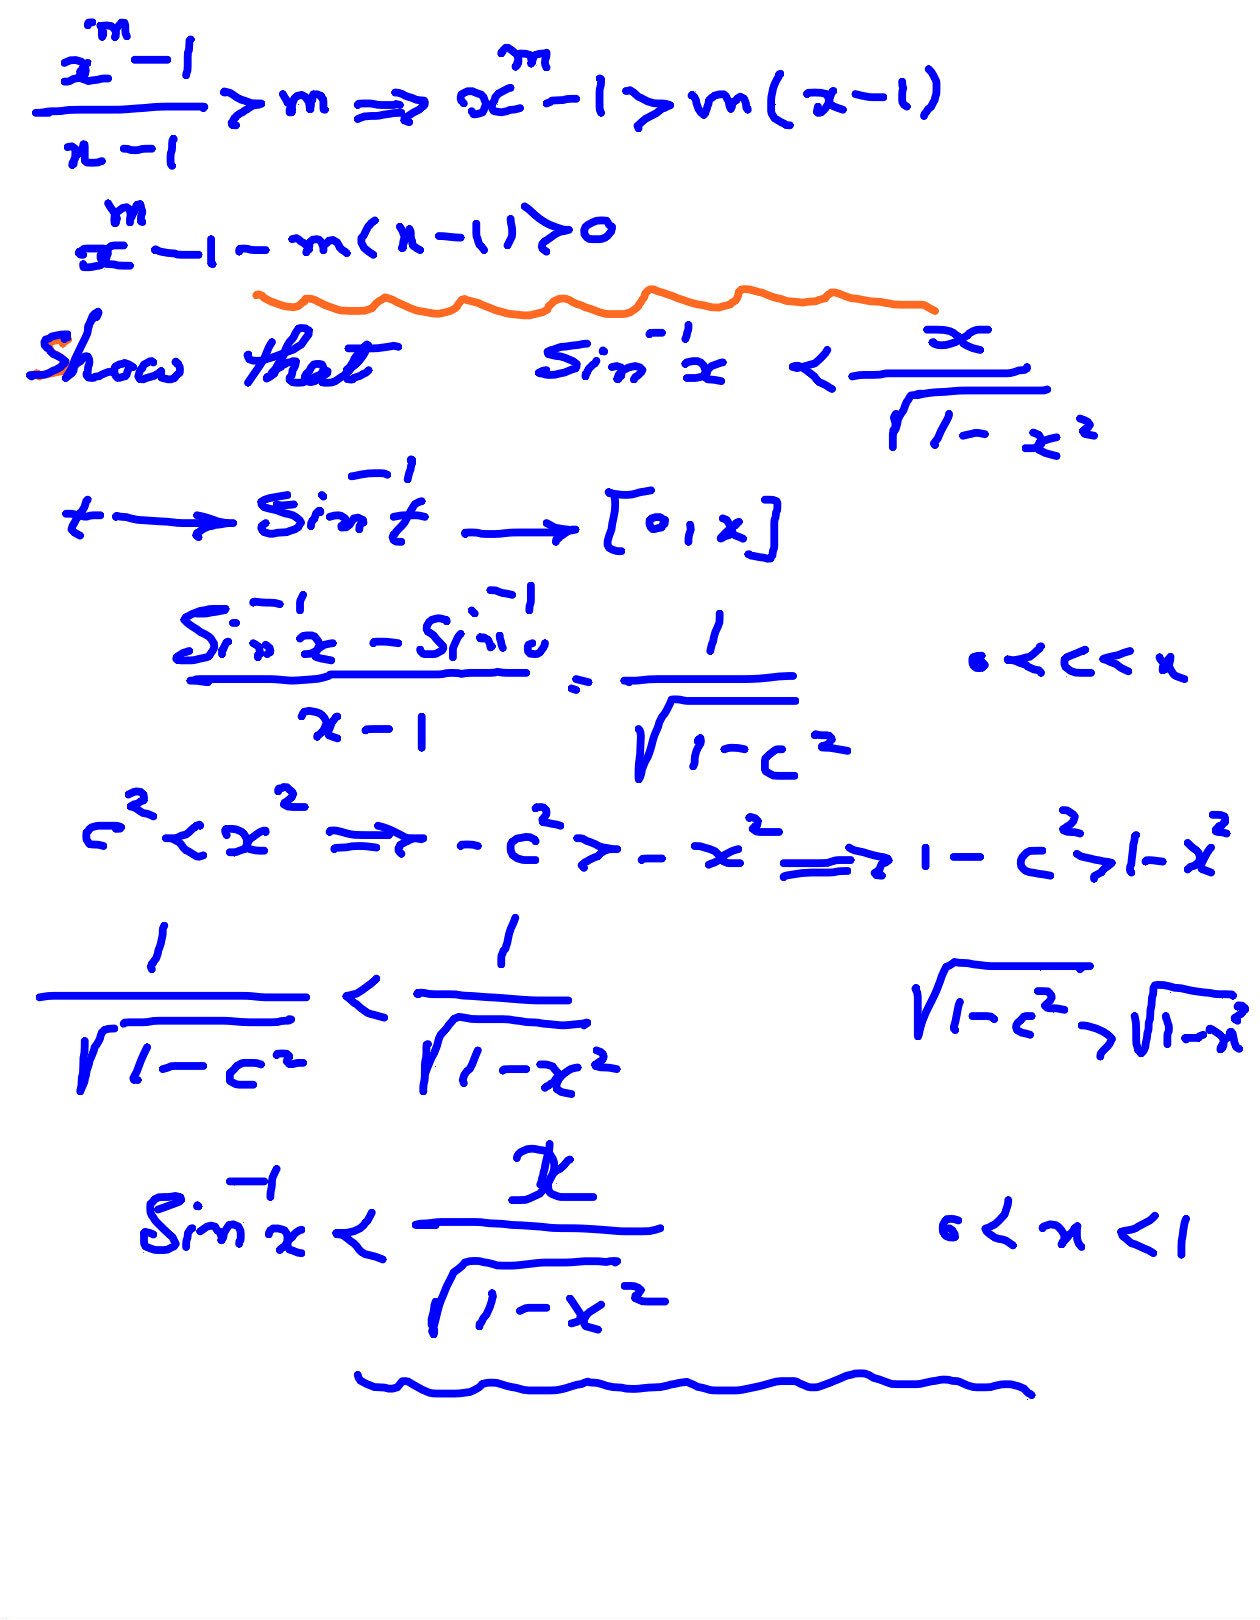 (x^m - 1)/(x - 1) > m ⇒ x^m - 1 > m(x - 1)
x^m - 1 - m(x - 1) > 0
Show that sin^-1 x < x/√(1 - x^2)
t → sin^-1 t → [0, x]
(sin^-1 x - sin^-1 0)/(x - 1) = 1/√(1 - c^2) 0 < c < x
c^2 < x^2 ⇒ -c^2 > -x^2 ⇒ 1 - c^2 > 1 - x^2
1/√(1 - c^2) < 1/√(1 - x^2) √(1 - c^2) > √(1 - x^2)
sin^-1 x < x/√(1 - x^2) 0 < x < 1